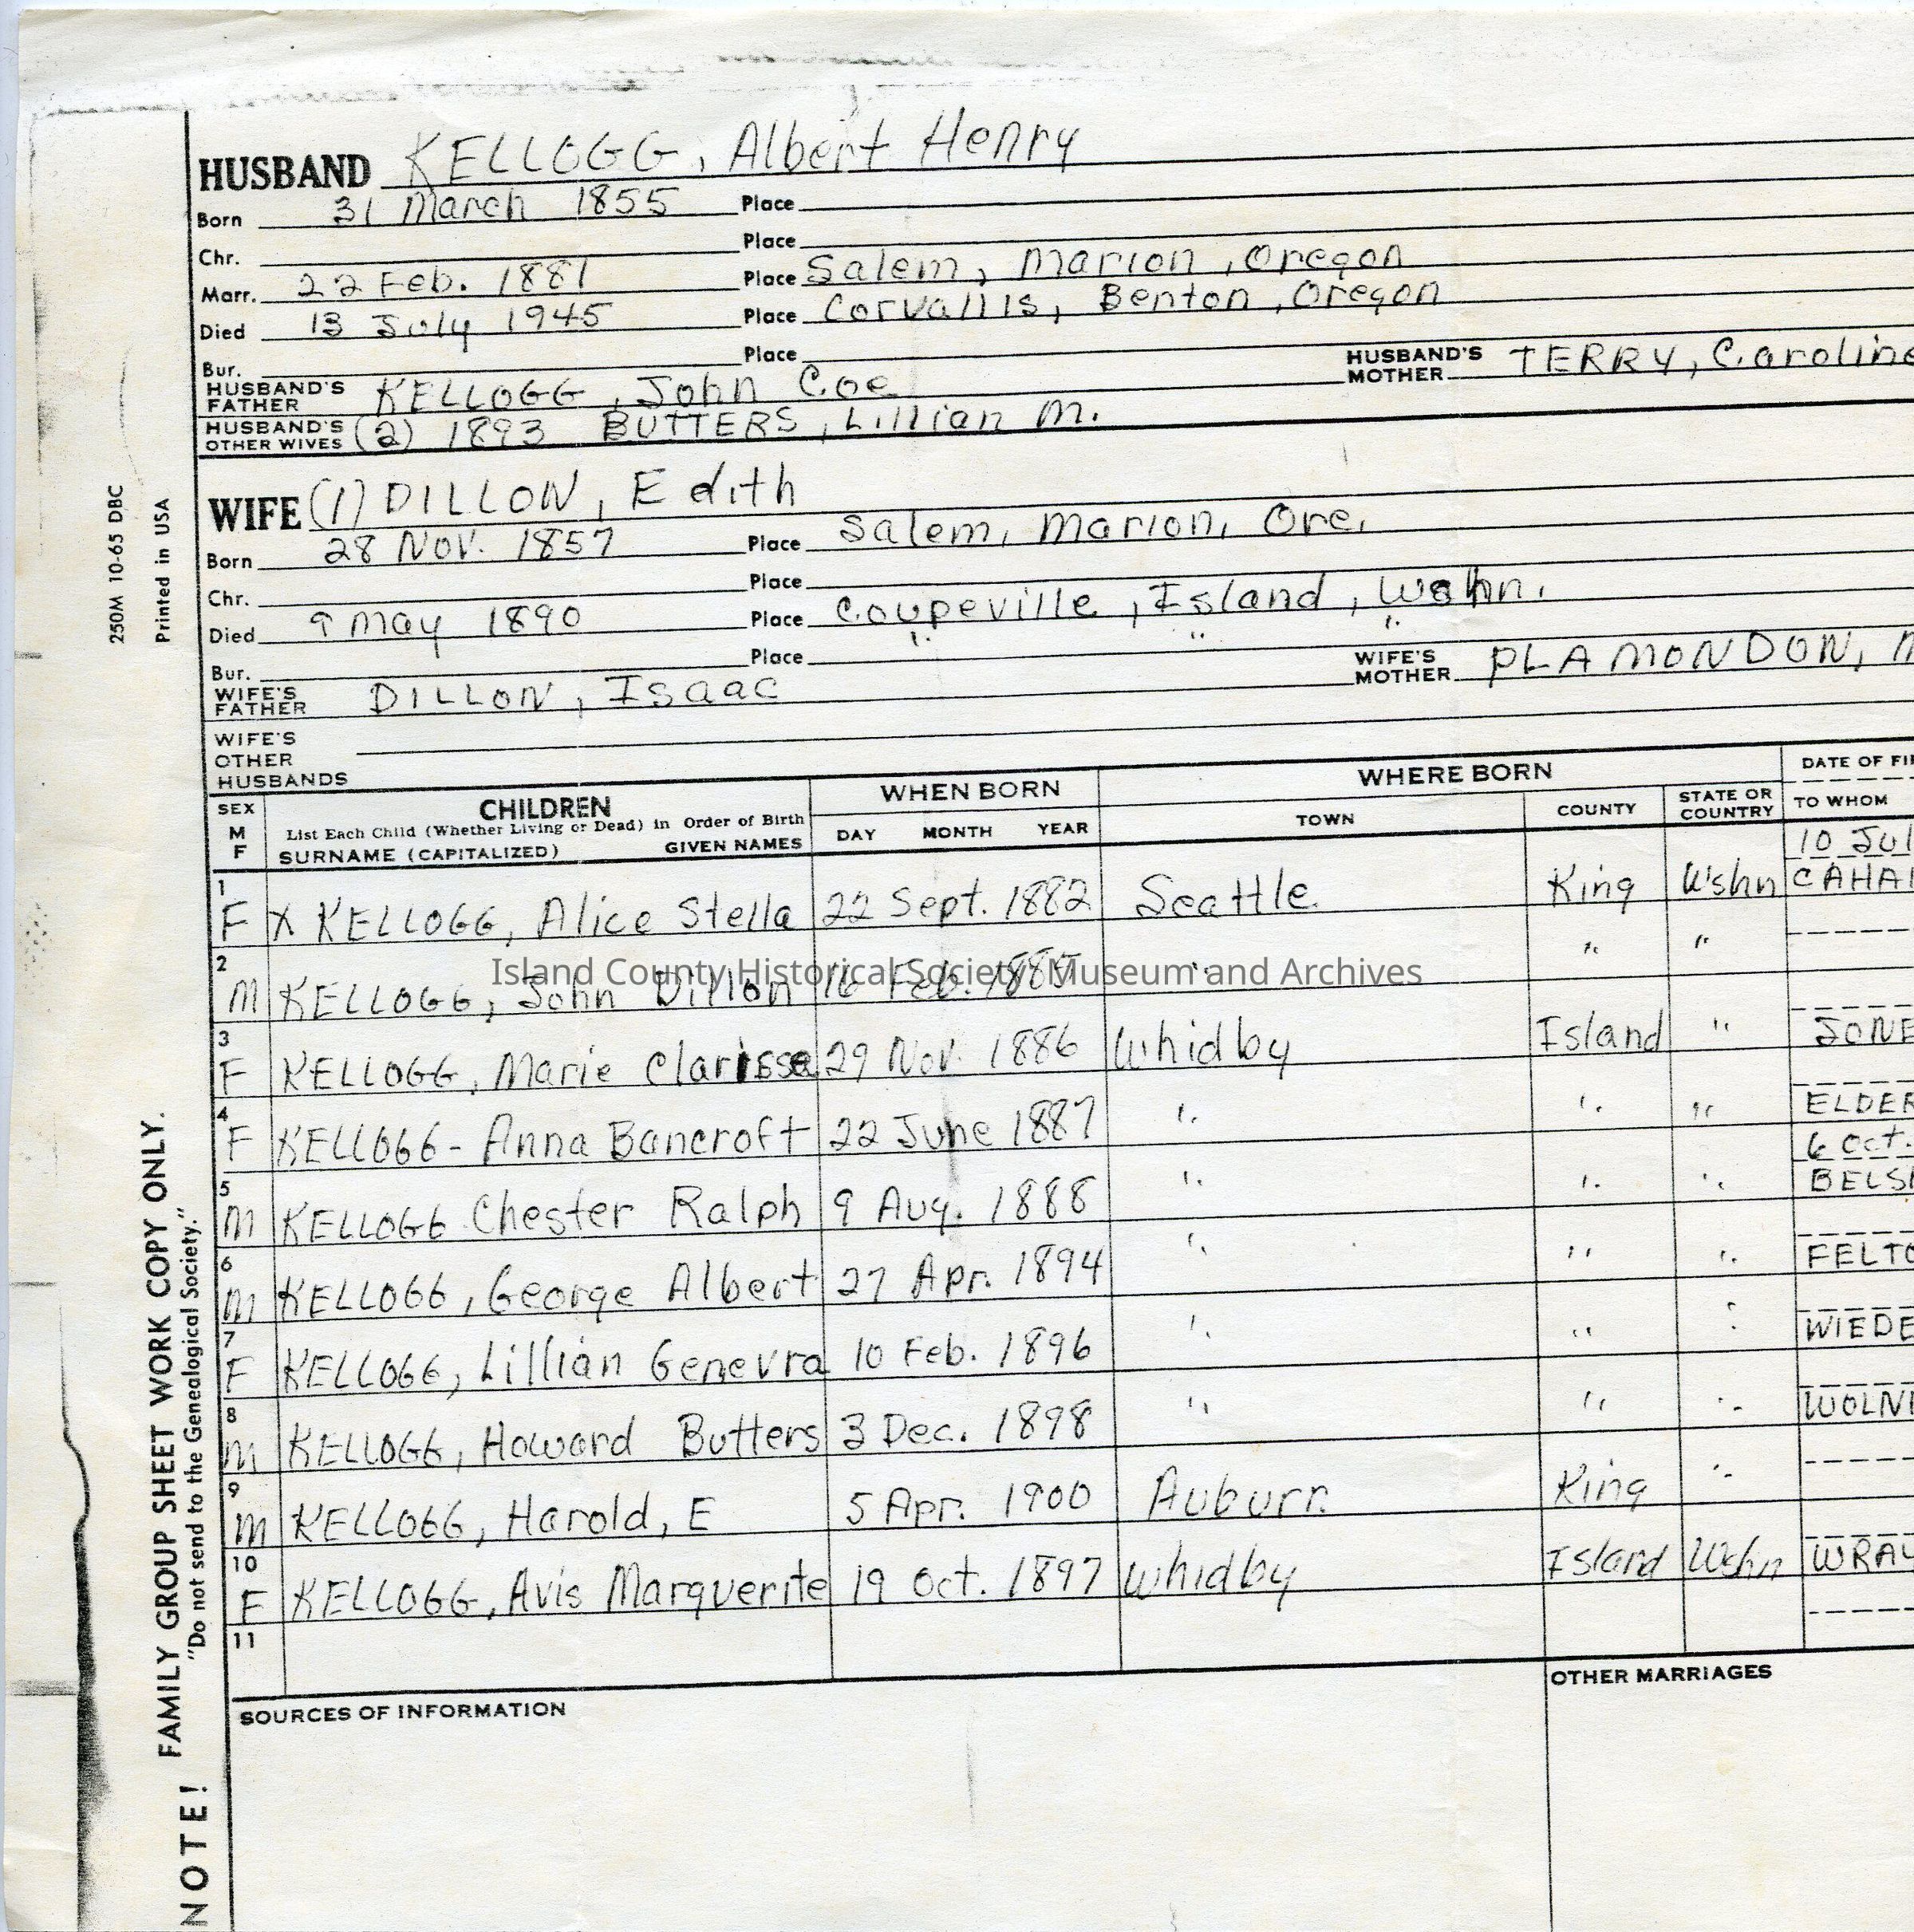 HUSBAND KELLOGG, Albert Henry
Born 31 March 1855 Place
Chr. Place
Marr. 22 Feb. 1881 Place Salem, Marion, Oregon
Died 13 July 1945 Place Corvallis, Benton, Oregon
Bur. Place
HUSBAND'S FATHER KELLOGG, John Coe HUSBAND'S MOTHER TERRY, Caroline
HUSBAND'S OTHER WIVES (2) 1893 BUTTERS, Lillian M.
WIFE (1) DILLON, Edith
Born 28 Nov. 1857 Place Salem, Marion, Ore.
Chr. Place
Died 9 May 1890 Place Coupeville, Island, Wshn.
Bur. Place " " "
WIFE'S FATHER DILLON, Isaac WIFE'S MOTHER PLAMONDON, M
WIFE'S OTHER HUSBANDS
SEX M F CHILDREN WHEN BORN WHERE BORN DATE OF FI
List Each Child (Whether Living or Dead) in Order of Birth DAY MONTH YEAR TOWN COUNTY STATE OR COUNTRY TO WHOM
SURNAME (CAPITALIZED) GIVEN NAMES
10 Jul
1 F X KELLOGG, Alice Stella 22 Sept. 1882 Seattle King Wshn CAHA
2 M KELLOGG, John Dillon 16 Feb. 1885 " " "
3 F KELLOGG, Marie Clarissa 29 Nov. 1886 Whidby Island " JONE
4 F KELLOGG - Anna Bancroft 22 June 1887 " " " ELDER
6 Oct.
5 M KELLOGG Chester Ralph 9 Aug. 1888 " " " BELS
6 M KELLOGG, George Albert 27 Apr. 1894 " " " FELTO
7 F KELLOGG, Lillian Genevra 10 Feb. 1896 " " " WIEDE
8 M KELLOGG, Howard Butters 3 Dec. 1898 " " " WOLN
9 M KELLOGG, Harold, E 5 Apr. 1900 Auburn King "
10 F KELLOGG, Avis Marguerite 19 Oct. 1897 Whidby Island Wshn WRAY
11
SOURCES OF INFORMATION OTHER MARRIAGES
Island County Historical Society Museum and Archives
250M 10-65 DBC
Printed in USA
NOTE! FAMILY GROUP SHEET WORK COPY ONLY.
"Do not send to the Genealogical Society."